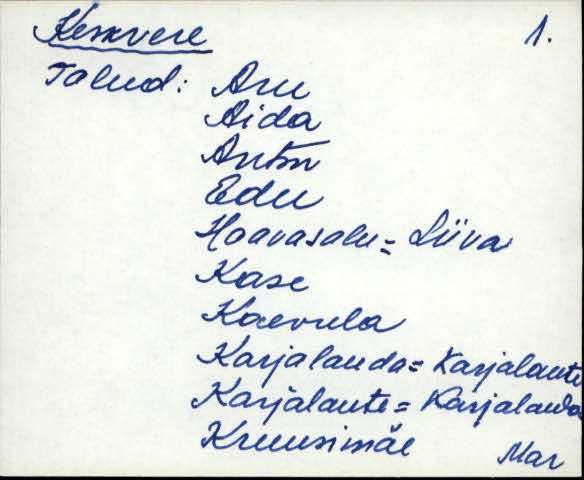 Keskvere 1.
Talud: Aru
Aida
Antsu
Edu
Haavasalu = Liiva
Kase
Kaevula
Karjalauda = Karjalaute
Karjalaute = Karjalauda
Kruusimäe
Mar